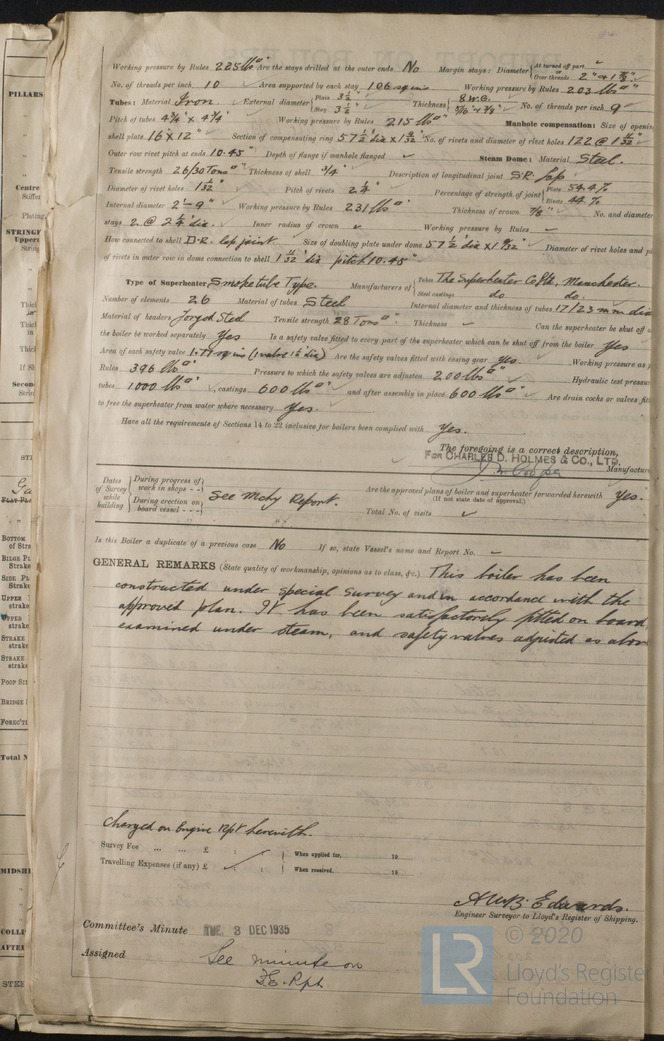 Working pressure by Rules 225 lbs □" Are the stays drilled at the outer ends No Margin stays: Diameter { At turned off part, or Over threads 2" & 1 7/8"
No. of threads per inch 10 Area supported by each stay 106 sq ins Working pressure by Rules 203 lbs □"
Tubes: Material Iron External diameter { Plain 3 1/2" Stay 3 1/2" Thickness { 8 W.G. No. of threads per inch 9
Pitch of tubes 4 3/4" x 4 3/4" Working pressure by Rules 215 lbs □" Manhole compensation: Size of opening
shell plate 16" x 12" Section of compensating ring 57 1/2" dia x 1 9/32" No. of rivets and diameter of rivet holes 122 @ 1 11/32"
Outer row rivet pitch at ends 10.45" Depth of flange if manhole flanged ✓ Steam Dome: Material Steel.
Tensile strength 26/30 Tons □" Thickness of shell 3/4" Description of longitudinal joint S.R. Lap
Diameter of rivet holes 1 1/32" Pitch of rivets 2 1/4" Percentage of strength of joint { Plate 54.4% Rivets 44.%
Internal diameter 2'-9" Working pressure by Rules 231 lbs □" Thickness of crown 7/8" No. and diameter
stays 2 @ 2 1/4" dia. Inner radius of crown ✓ Working pressure by Rules ✓
How connected to shell D.R. lap joint Size of doubling plate under dome 57 1/2" dia x 1 9/32" Diameter of rivet holes and
of rivets in outer row in dome connection to shell 1 11/32" dia pitch 10.45"
Type of Superheater Smoke tube Type. Manufacturers of { Tubes The Superheater Co Ltd, Manchester.
Steel castings do do.
Number of elements 26 Material of tubes Steel Internal diameter and thickness of tubes 17/23 mm dia
Material of headers Forged Steel Tensile strength 28 Tons □" Thickness ✓ Can the superheater be shut off
the boiler be worked separately Yes Is a safety valve fitted to every part of the superheater which can be shut off from the boiler Yes
Area of each safety valve 1.77 sq ins (1 valve 1 1/2" dia) Are the safety valves fitted with easing gear yes. Working pressure as
Rules 396 lbs □" Pressure to which the safety valves are adjusted 200 lbs □" Hydraulic test pressure
tubes 1000 lbs □", castings 600 lbs □" and after assembly in place 600 lbs □" Are drain cocks or valves
to free the superheater from water where necessary Yes.
Have all the requirements of Sections 14 to 22 inclusive for boilers been complied with Yes.
The foregoing is a correct description,
FOR CHARLES D. HOLMES & CO., LTD.
Manufacture
Dates of Survey while building { During progress of work in shops - - During erection on board vessel - - - } See Mchy Report. Are the approved plans of boiler and superheater forwarded herewith Yes.
(If not state date of approval.)
Total No. of visits ✓
Is this Boiler a duplicate of a previous case No If so, state Vessel's name and Report No. ✓
GENERAL REMARKS (State quality of workmanship, opinions as to class, &c.) This boiler has been
constructed under special survey and in accordance with the
approved plan. It has been satisfactorily fitted on board
examined under steam, and safety valves adjusted as above
Charged on Engine Rpt herewith.
Survey Fee ... ... £ : : When applied for, 19
Travelling Expenses (if any) £ : : When received, 19
A.W.B. Edwards.
Engineer Surveyor to Lloyd's Register of Shipping.
Committee's Minute TUE. 3 DEC 1935
Assigned See minute on
F.E. Rpt.
LR © 2020
Lloyd's Register
Foundation
PILLARS
Centre
Plating
Upper
Thick
If Sh
BOTTOM
of Stra
Strake
SIDE PL
strake
UPPER
strake
STRAKE
strake
STRAKE
strake
POOP SI
BRIDGE
FOREC'T
Total N
MIDSHI
COLLI
AFTER